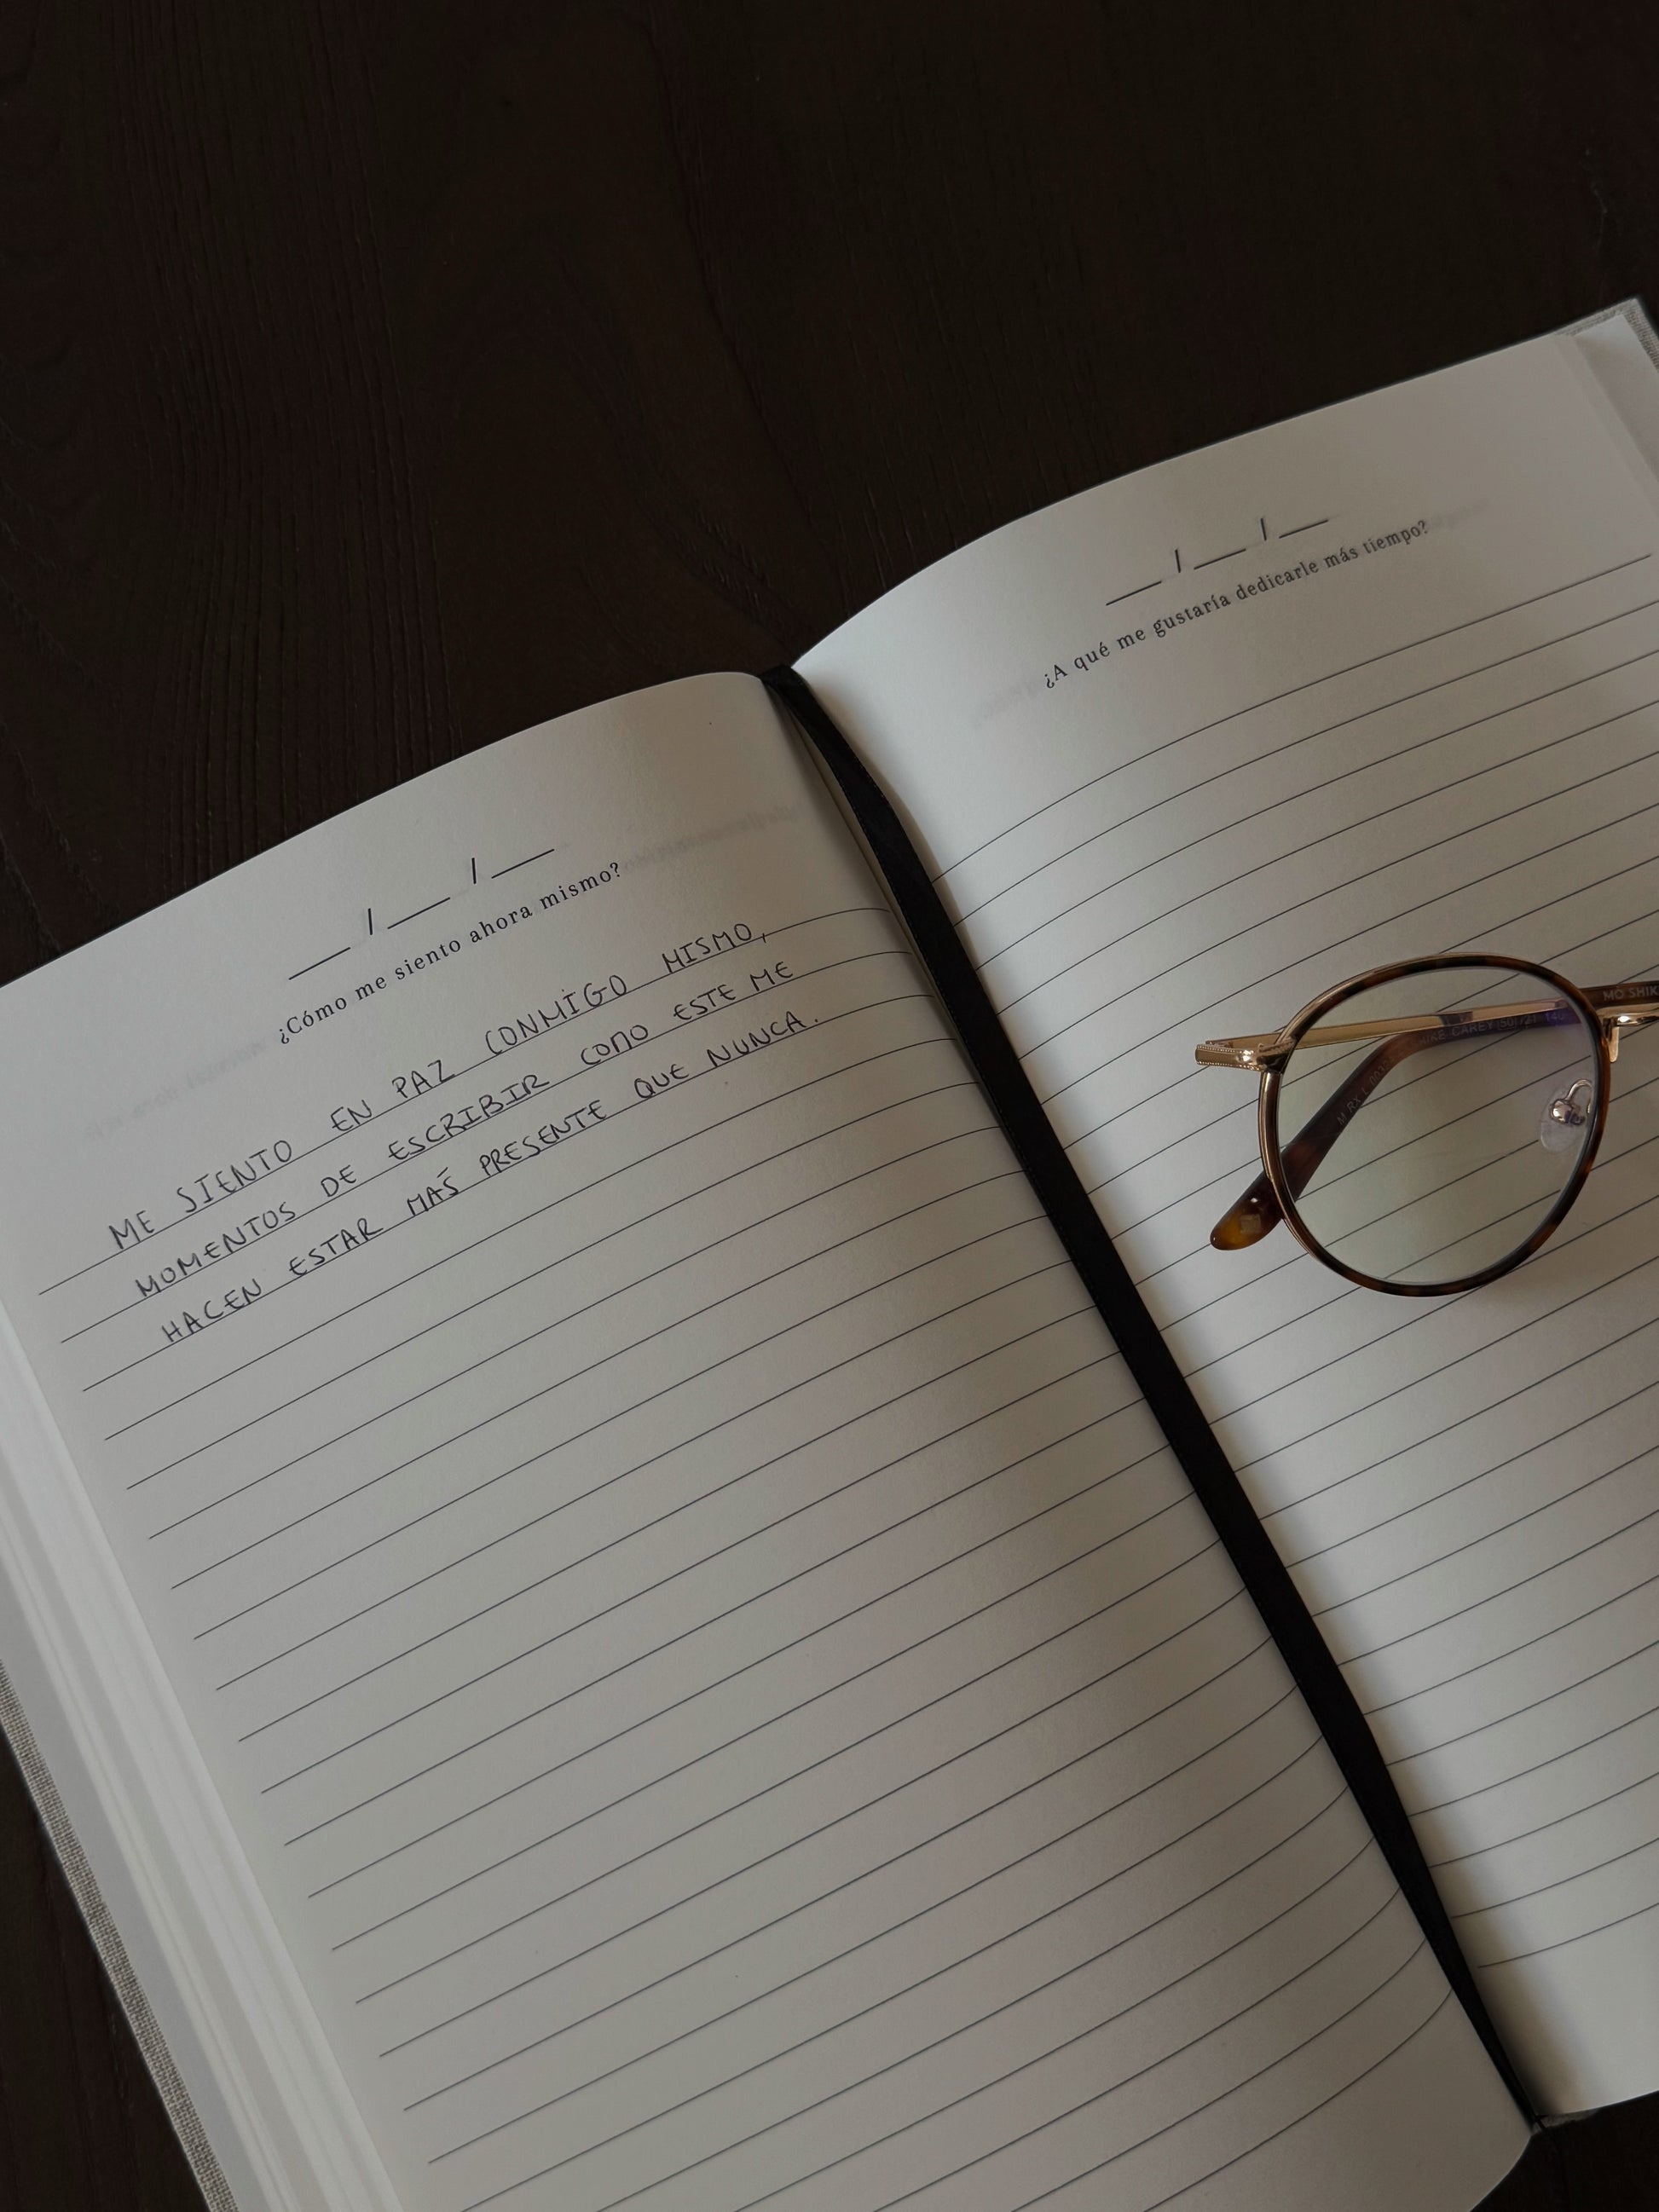 __ / __ / __
¿Cómo me siento ahora mismo?
ME SIENTO EN PAZ CONMIGO MISMO,
MOMENTOS DE ESCRIBIR COMO ESTE ME
HACEN ESTAR MAŚ PRESENTE QUE NUNCA.
__ / __ / __
¿A qué me gustaría dedicarle más tiempo?
MO SHIK